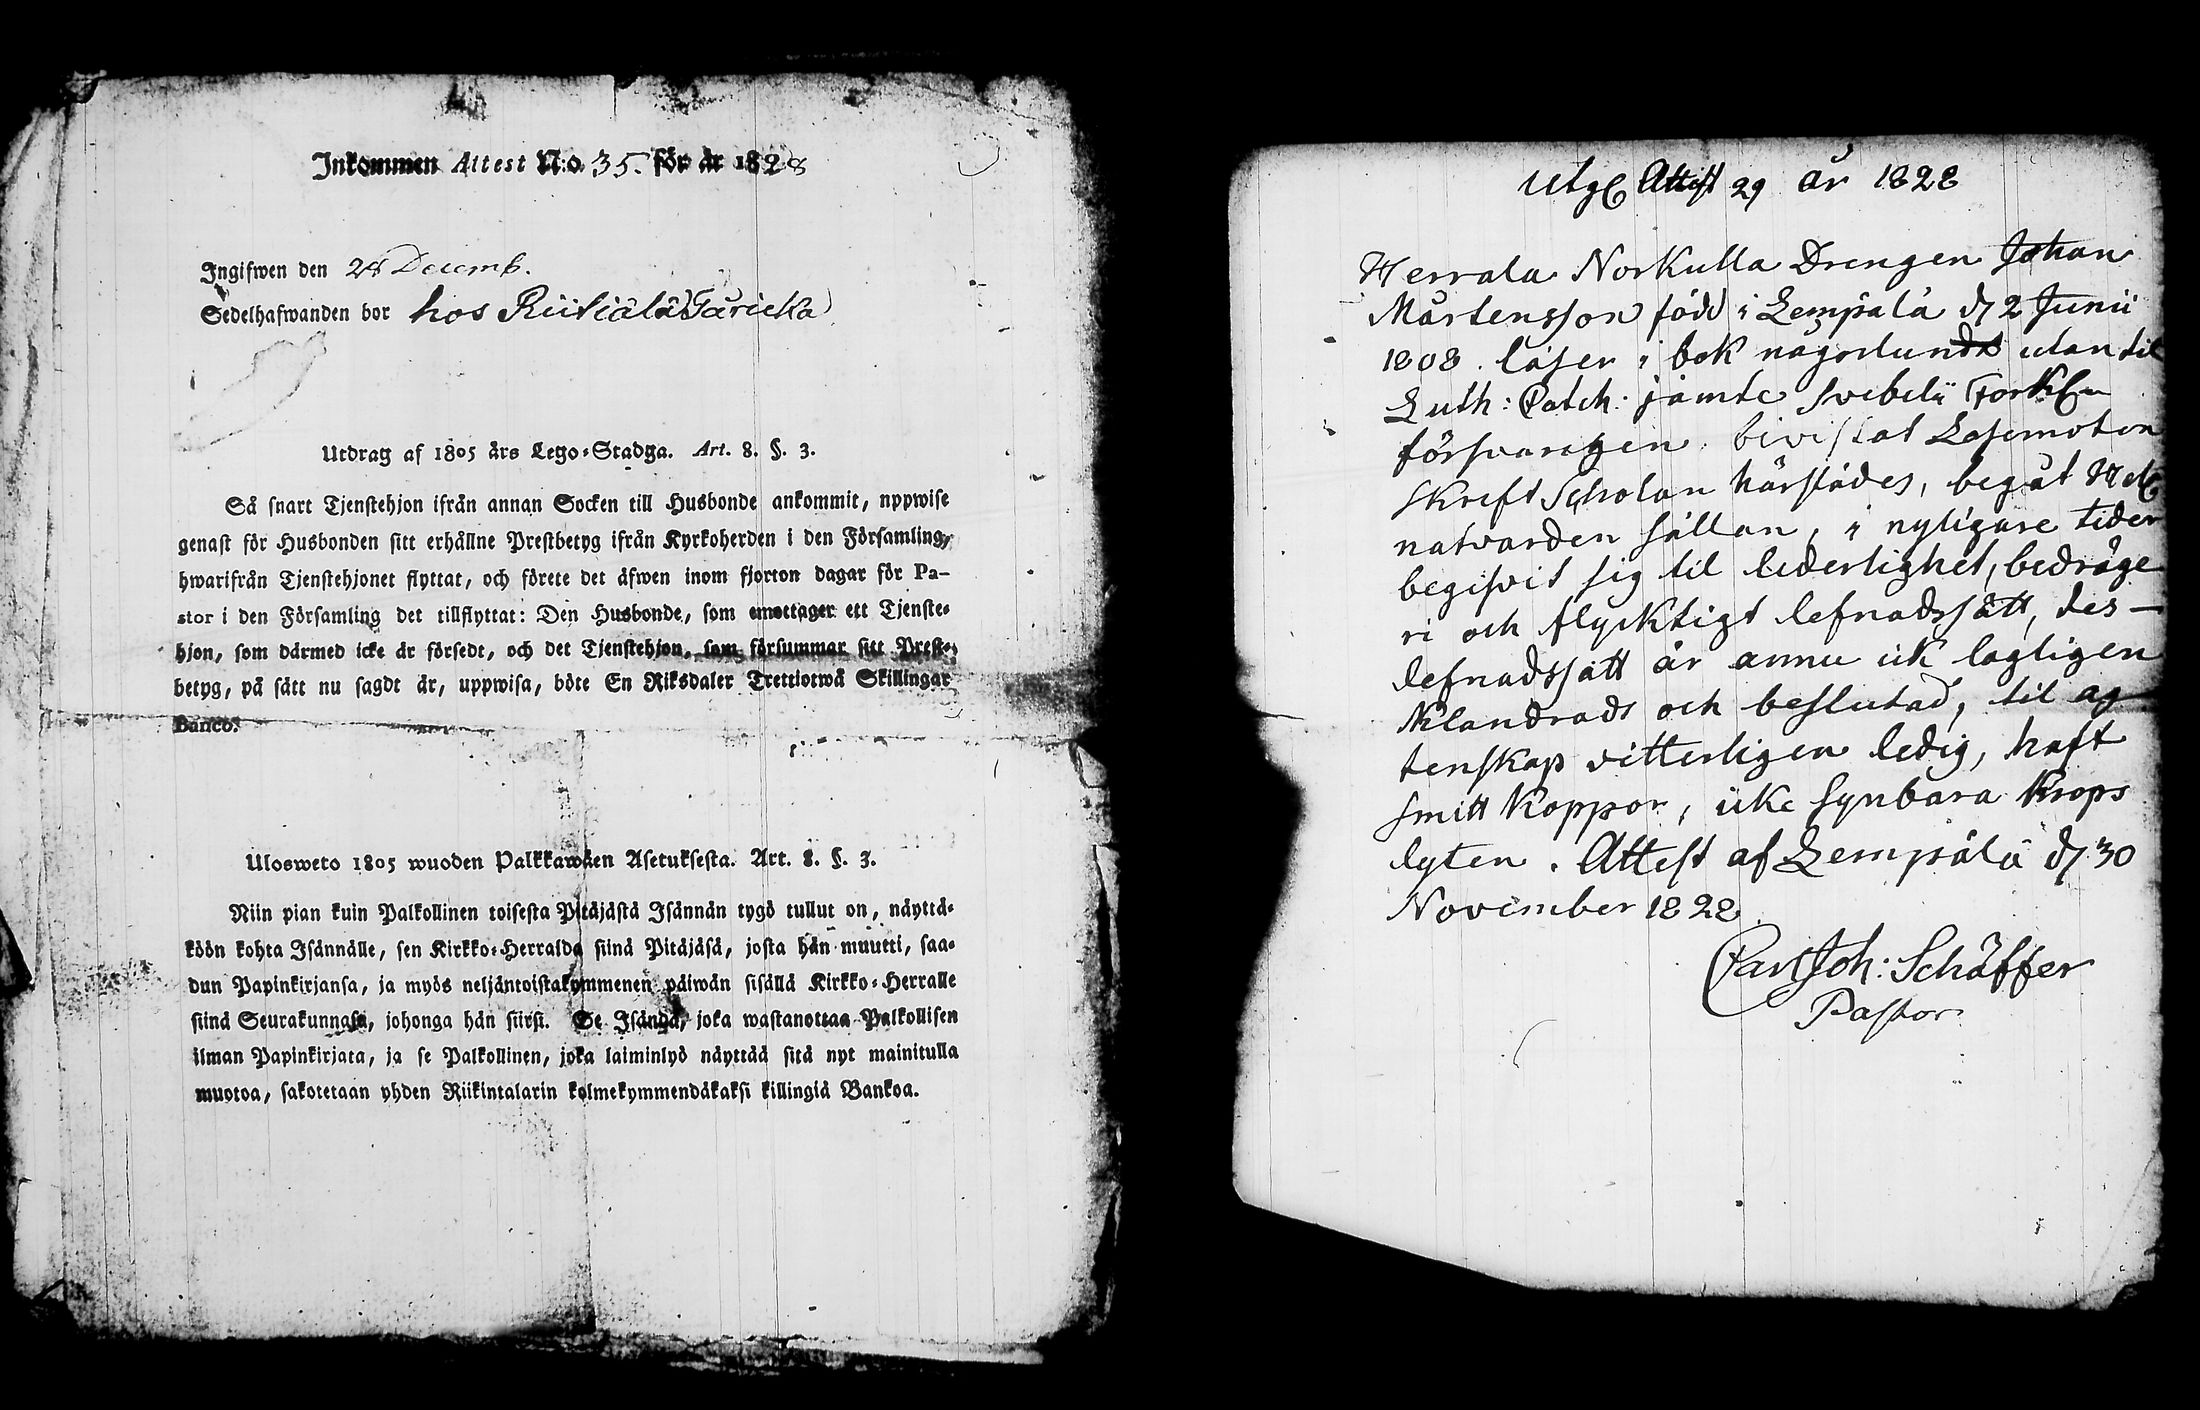 Inkommen Attest N:o 35. för år 1828
Ingifwen den 28 Decemb.
Sedelhafwanden bor hos Riitiälä Garicka
Utdrag af 1805 års Lego-Stadga. Art. 8. §. 3.
Så snart Tjenstehjon ifrån annan Socken till Husbonde ankommit, nppwise
genast för Husbonden sitt erhållne Prestbetyg ifrån Kyrkoherden i den Församling,
hwarifrån Tjenstehjonet flyttat, och förete det äfwen inom fjorton dagar för Pa-
stor i den Församling det tillflyttat: Den Husbonde, som emottager ett Tjenste-
hjon, som därmed icke är försedt, och det Tjenstehjon, som försummar sitt Prest-
betyg, på sätt nu sagdt är, uppwisa, böte En Riksdaler Trettiotwå Skillingar
Banco.
Ulosweto 1805 wuoden Palkkawäen Asetuksesta. Art. 8. §. 3.
Niin pian kuin Palkollinen toisesta Pitäjästä Isännän tygö tullut on, näyttä-
köön kohta Isännälle, sen Kirkko-Herralda siinä Pitäjäsä, josta hän muutti, saa-
dun Papinkirjansa, ja myös neljäntoistakymmenen päiwän sisällä Kirkko-Herralle
siinä Seurakunnasa, johonga hän siirsi. Se Isändä, joka wastanottaa Palkollisen
ilman Papinkirjata, ja se Palkollinen, joka laiminlyö näyttää sitä nyt mainitulla
muotoa, sakotetaan yhden Riikintalarin kolmekymmendäkaksi killingiä Bankoa.
Utg Attest 29 år 1828
Herrala Norkulla Drengen Johan
Mårtensson född i Lempälä d 2 Junii
1808. läser i bok någorlunda utan til
Luth: Catch: jämte Svebelii
försvaringen. bivistat Läsemöten
Skrift Scholan härstädes, begåt H
natvarden sällan, i nyligare tider
begifvit sig til liderlighet, bedräge
ri och flycktigt lefnadssätt, des-
lefnadssätt är ännu ick lagligen
klandrads och beslutad, til äg
tenskap vitterligen ledig, haft
smitt Koppor, icke synbara krops
lyten. Attest af Lempälä d 30
November 1828.
Carl Joh: Schäffer
Pastor